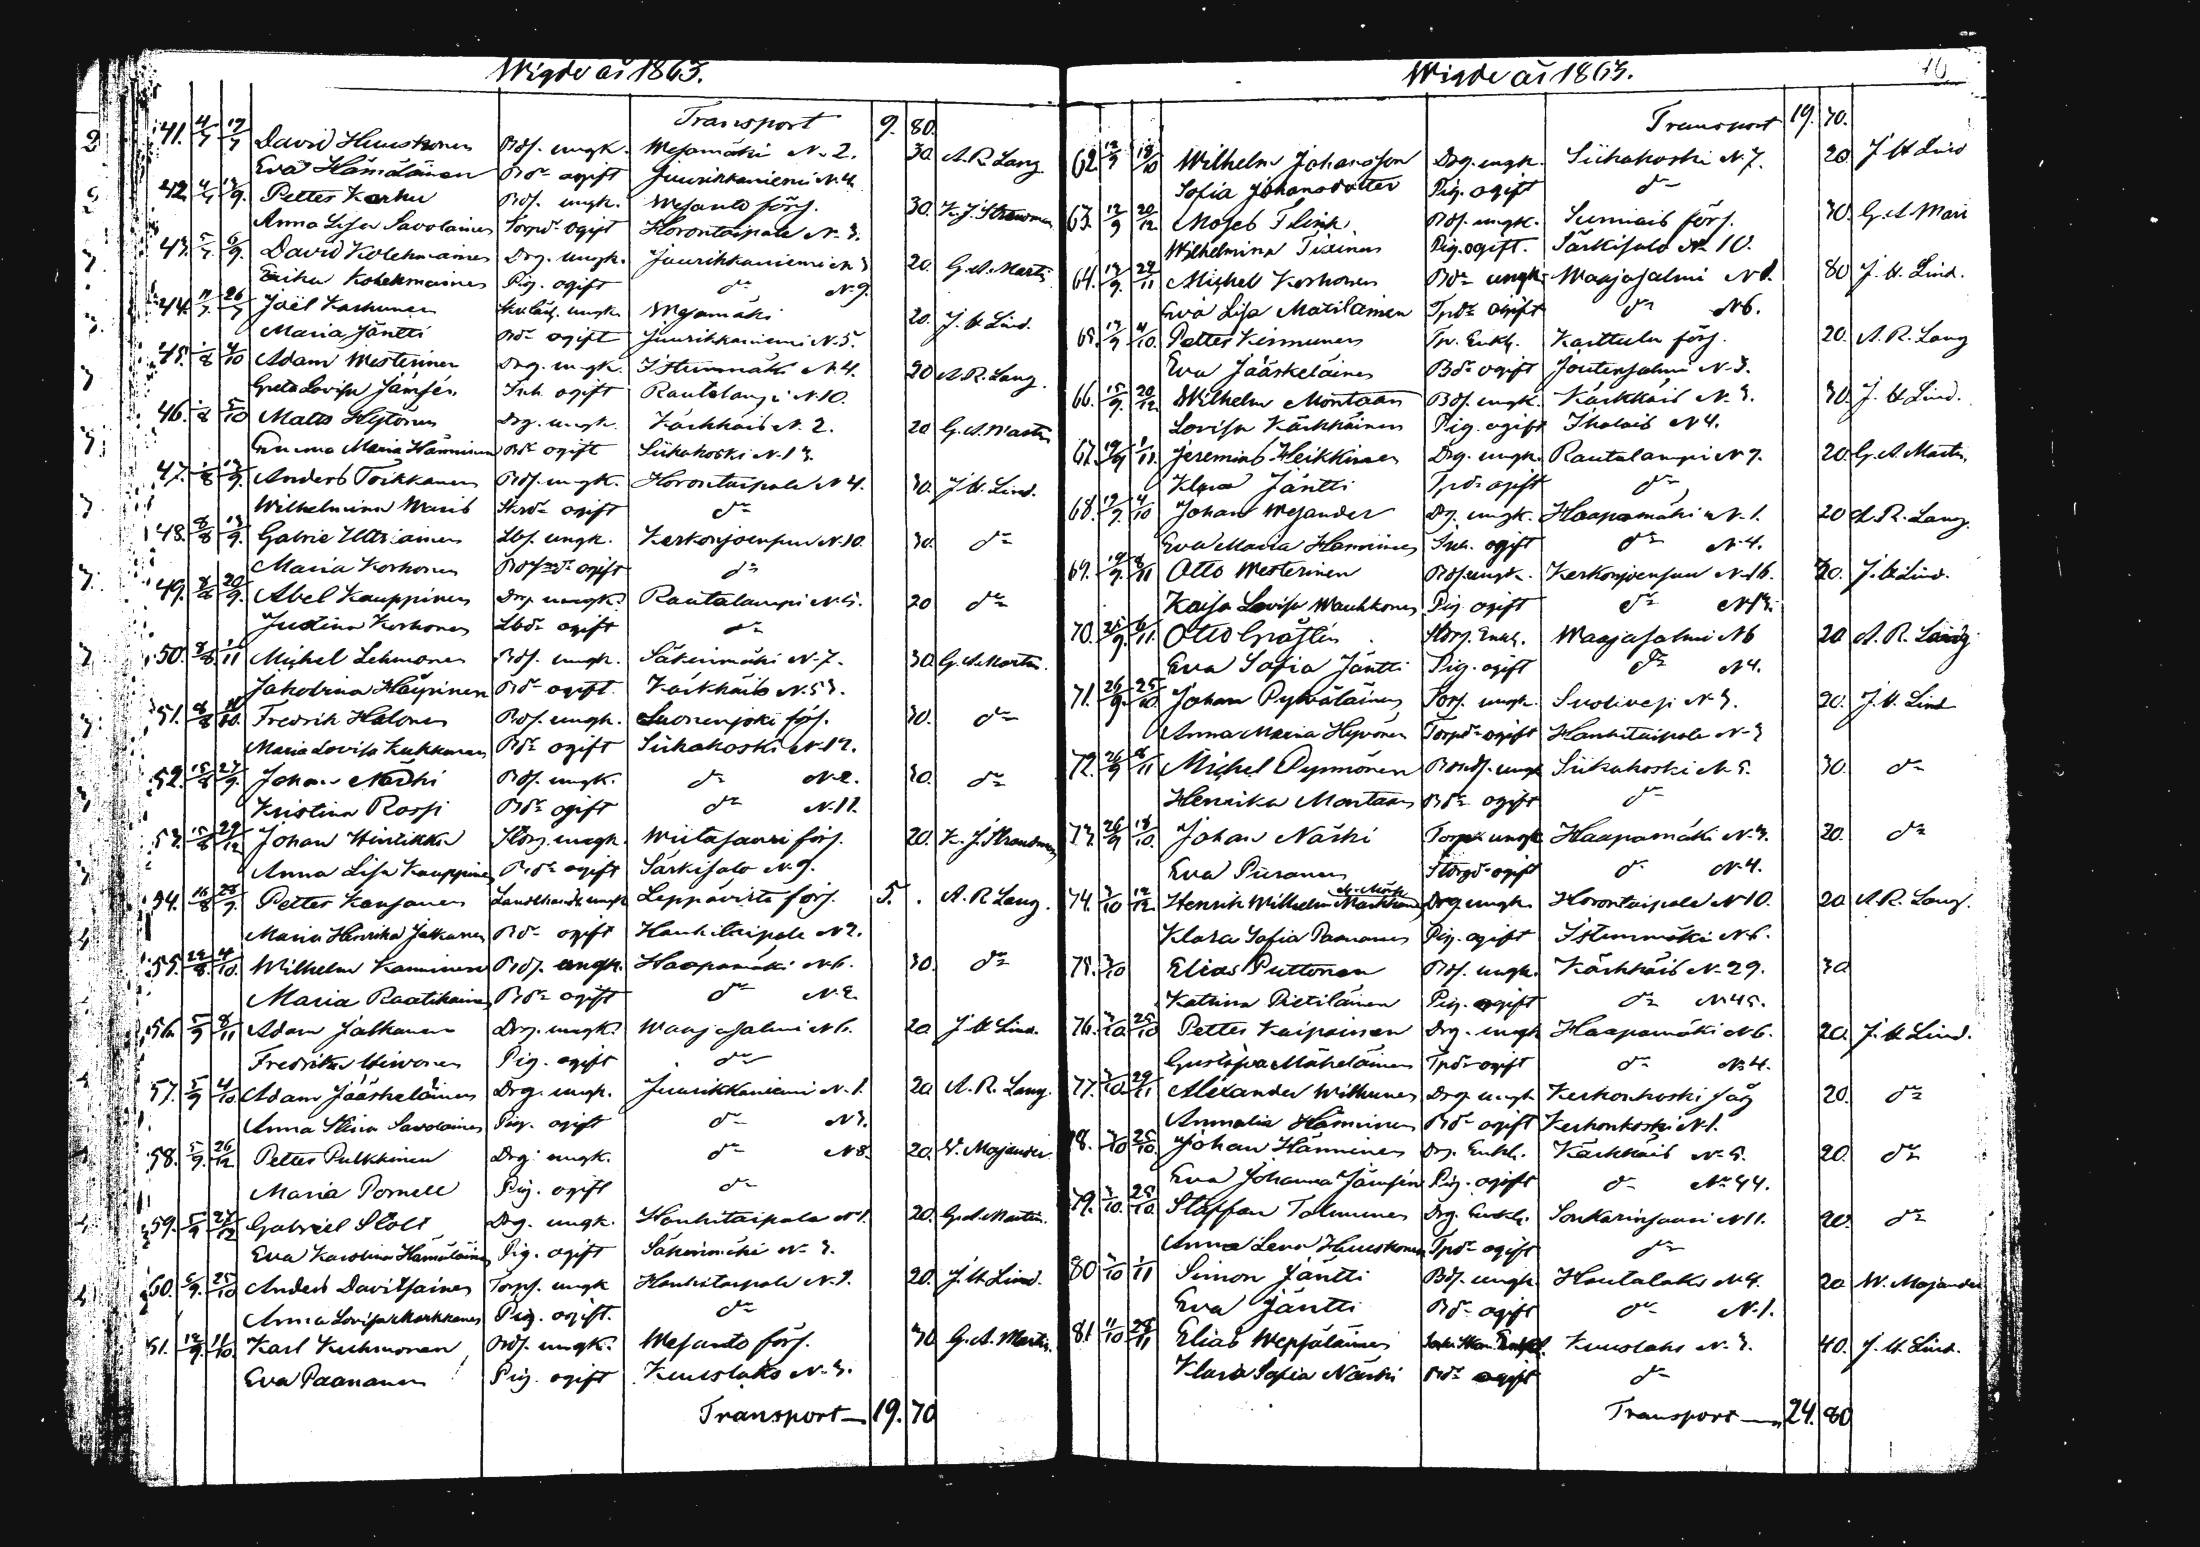 Wigde år 1863.
Transport 9. 80.
41. 4/7 David Huuskonen Bdſ. ungk. Wesamäki N. 2. 30 A. R. Lang
Eva Hämäläinen Bdr ogift Juurikkaniemi N. 4.
42. Petter Karhu Bdſ. ungk. Wesanto förſ. 30. K. J. Strandman
Anna Lisa Savolainen Torpdr ogift Horontaipale N. 3.
43. David Kolehmainen Drg. ungk. Juurikkaniemi N. 3 20. G. A. Martin
Kolehmainen Pig. ogift dr N. 9.
44. Joël Korhonen ungk. Wesamäki 20. J. U. Lind.
Maria Jäntti Bdr ogift Juurikkaniemi N. 5.
45. Adam Westerinen Drg. ungk. Istunmäki N. 4. 20 A. R. Lang.
Greta Lovisa Jämsén Inh. ogift Rautalampi N. 10.
46. 5/10 Matts Hytönen Drg. ungk. Kärkkäis N. 2. 20 G. A. Martin
Emma Maria Hänninen Bdr ogift Siikakoski N. 13.
47. Anders Toikkanen Bdſ. ungk. Horontaipale N. 4. 30. J. U. Lind.
Wilhelmina Waris ogift dr
48. 8/8 13/9. Gabriel ungk. Kerkonjoensuu N. 10. 30. dr
Maria Korhonen ogift dr
49. 8/8 20/9. Abel Kauppinen Drg. ungk. Rautalampi N. 5. 20 dr
Justina Korhonen Lbdr ogift dr
50. 8/8 1/11 Michel Lehmonen Bdſ. ungk. Säkinmäki N. 7. 30. G. A. Martin.
Jakobina Häyrinen Bdr ogift. Kärkkäis N. 53.
51. 8/8 Fredrik Halonen Bdſ. ungk. Suonenjoki förſ. 30. dr
Maria Lovisa Kukkonen Bdr ogift Siikakoski N. 12.
52. 15/8 27/9. Johan Närhi Bdſ. ungk. dr N. 2. 30. dr
Kristina Rossi Bdr ogift dr N. 11.
53. 15/8 29/12 Johan Hintikka ungk. Wiitasaari förſ. 20. K. J. Strandman
Anna Lisa Kauppinen Bdr ogift Särkisalo N. 9.
54. 16/8 Petter Kansanen ungk. Leppävirta förſ. 5. . A. R. Lang.
Maria Henrika Jalkanen Bdr ogift Hankitaipale N. 2.
55. 22/8 4/10. Wilhelm Kanninen Bdſ. ungk. Haapamäki N. 6. 30. dr
Maria Raatikainen Bdr ogift dr N. 2.
56. 5/9 8/11 Adam Jalkanen Drg. ungk. Waajasalmi N. 6. 20 J. U. Lind.
Fredrika Hiivonen Pig. ogift dr
57. 5/9 4/10 Adam Jääskeläinen Drg. ungk. Juurikkaniemi N. 1. 20 A. R. Lang.
Anna Stina Savolainen Pig. ogift dr N. 3.
58. 5/9. 26/12 Petter Pulkkinen Drg. ungk. dr N. 8. 20. W. Majander
Maria Pornell Pig. ogift dr
59. 5/9 27/12 Gabriel Stolt Drg. ungk. Hankitaipale N. 1. 20. G. A. Martin.
Eva Karolina Hämäläinen Pig. ogift Säkinmäki N. 3.
60. 25/10 Anders Davitsainen Torpſ. ungk Hankitaipale N. 9. 20. J. U. Lind.
Anna Lovisa Markkanen Pig. ogift. dr
61. 12/9. 11/10. Karl Kuhmonen Bdſ. ungk. Wesanto förſ. 30 G. A. Martin.
Eva Paananen Pig. ogift Kuuslaks N. 3.
Transport 19. 70
Wigde år 1863.
Transport 19. 70.
62. 12/9 18/10 Wilhelm Johansson Drg. ungk. Siikakoski N. 7. 20 J. U. Lind
Sofia Johansdotter Pig. ogift dr
63. 12/9 20/12. Moses Flink Bdſ. ungk. Sumiais förſ. 30. G. A. Mart
Wilhelmina Pig. ogift. Särkisalo N. 10.
64. 13/9. 22/11 Michel Korhonen Bdr ungk. Waajasalmi N. 1. 80 J. U. Lind.
Eva Lisa Matilainen Tpdr ogift dr N. 6.
65. 4/10. Petter Kinnunen Tp. Enkl. Karttula förſ. 20. A. R. Lang
Eva Jääskeläinen Bdr ogift Joutensalmi N. 3.
66. 15/9. 20/12 Wilhelm Montaan Bdſ. ungk. Kärkkäis N. 3. 30. J. U. Lind.
Lovisa Kärkkäinen Pig. ogift Ihalais N. 4.
67. 19/9 1/11. Jeremias Heikkinen Drg. ungk. Rautalampi N. 7. 20. G. A. Martin,
Klara Jäntti Tpdr ogift dr
68. 19/9. 4/10 Johan Wejander Drg. ungk. Haapamäki N. 1. 20 A. R. Lang.
Eva Maria Hänninen Inh. ogift dr N. 4.
69. 19/9. 8/11 Otto Westerinen Bdſ. ungk. Kerkonjoensuu N. 16. 20. J. U. Lind.
Kaisa Lovisa Wauhkonen Pig. ogift dr
70. 25/9. 6/11 Otto Gräsén Enkl. Waajasalmi N. 6 20 A. R. Lang
Eva Sofia Jäntti Pig. ogift dr N. 4.
71. 26/9. 25/10 Johan Pylväläinen Torſ. ungk. Suolivesi N. 3. 20. J. U. Lind
Anna Maria Hyvönen Torpdr ogift Hankitaipale N. 3
72. 26/9 8/11 Michel Pynnönen Bondſ. ungk Siikakoski N. 5. 30. dr
Henrika Montaan Bdr ogift dr
73. 26/9 18/10. Johan Närhi ungk Haapamäki N. 3. 20. dr
Eva Piiranen ogift dr N. 4.
74. 3/10 12/12. Henrik Wilhelm Markkanen Drg. ungk. Horontaipale N. 10. 20 A. R. Lang.
Klara Sofia Paananen Pig. ogift Istunmäki N. 6.
75. 3/10 Elias Puttonen Bdſ. ungk. Kärkkäis N. 29. 30
Katrina Pietiläinen Pig. ogift dr N. 45.
76. 3/10 25/10 Petter Kaipainen Drg. ungk Haapamäki N. 6. 20. J. U. Lind.
Gustava Mäkeläinen Tpdr ogift dr N. 4.
77. 3/10 29/11 Alexander Wilhunen Drg. ungk Kerkonkoski såg 20. dr
Annalia Hänninen Bdr ogift Kerkonkoski N. 1.
78. 3/10 25/10. Johan Hänninen Drg. Enkl. Kärkkäis N. 5. 20. dr
Eva Johanna Jämsén Pig. ogift dr N. 44.
79. 3/10. 25/10 Staffan Tolmunen Drg. Enkl. Sonkarinsaari N. 11. 20. dr
Anna Lena Huuskonen Tpdr ogift dr
80 3/10 1/11 Simon Jäntti Bdſ. ungk. Hautalaks N. 4. 20 W. Majander
Eva Jäntti Bdr ogift dr N. 1.
81. 11/10 Elias Wepsäläinen Kuuslaks N. 3. 40. J. U. Lind.
Klara Sofia Närhi Bdr ogift dr
Transport 24. 80